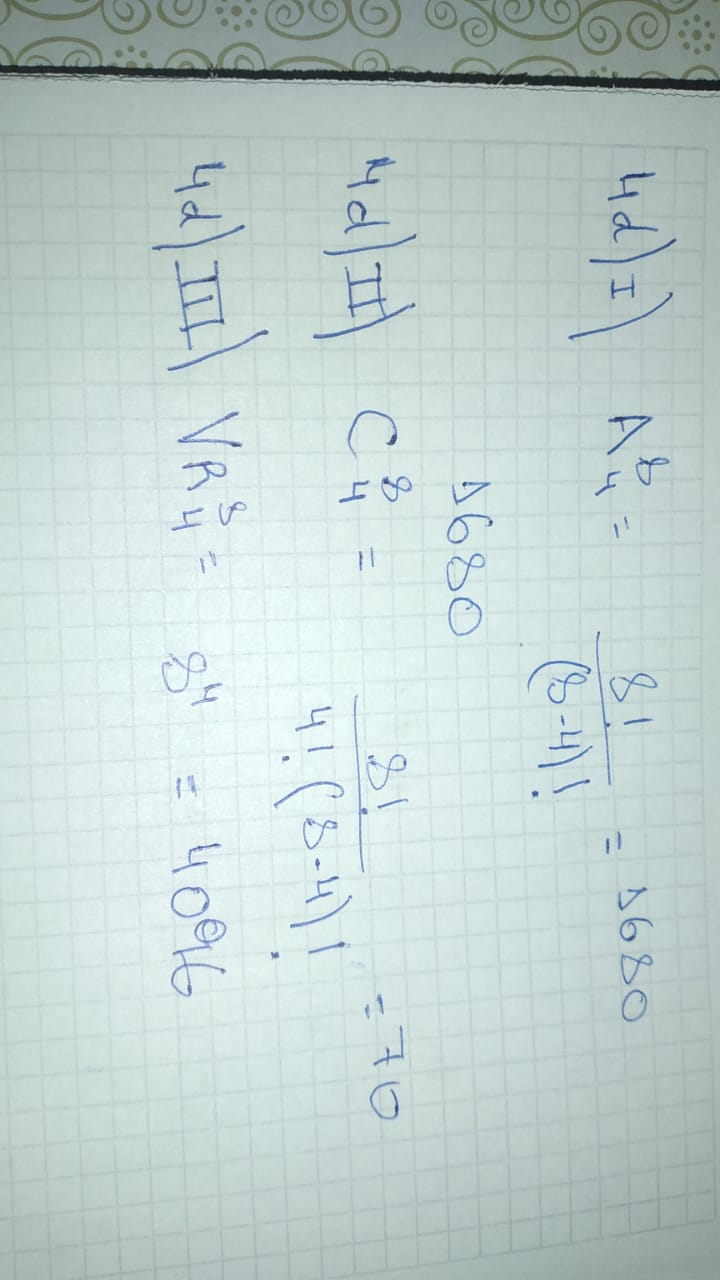 4d) I) A⁸₄ = 8! / (8-4)! = 1680
1680
4d) II) C⁸₄ = 8! / 4! (8-4)! = 70
4d) III) VR⁸₄ = 8⁴ = 4096